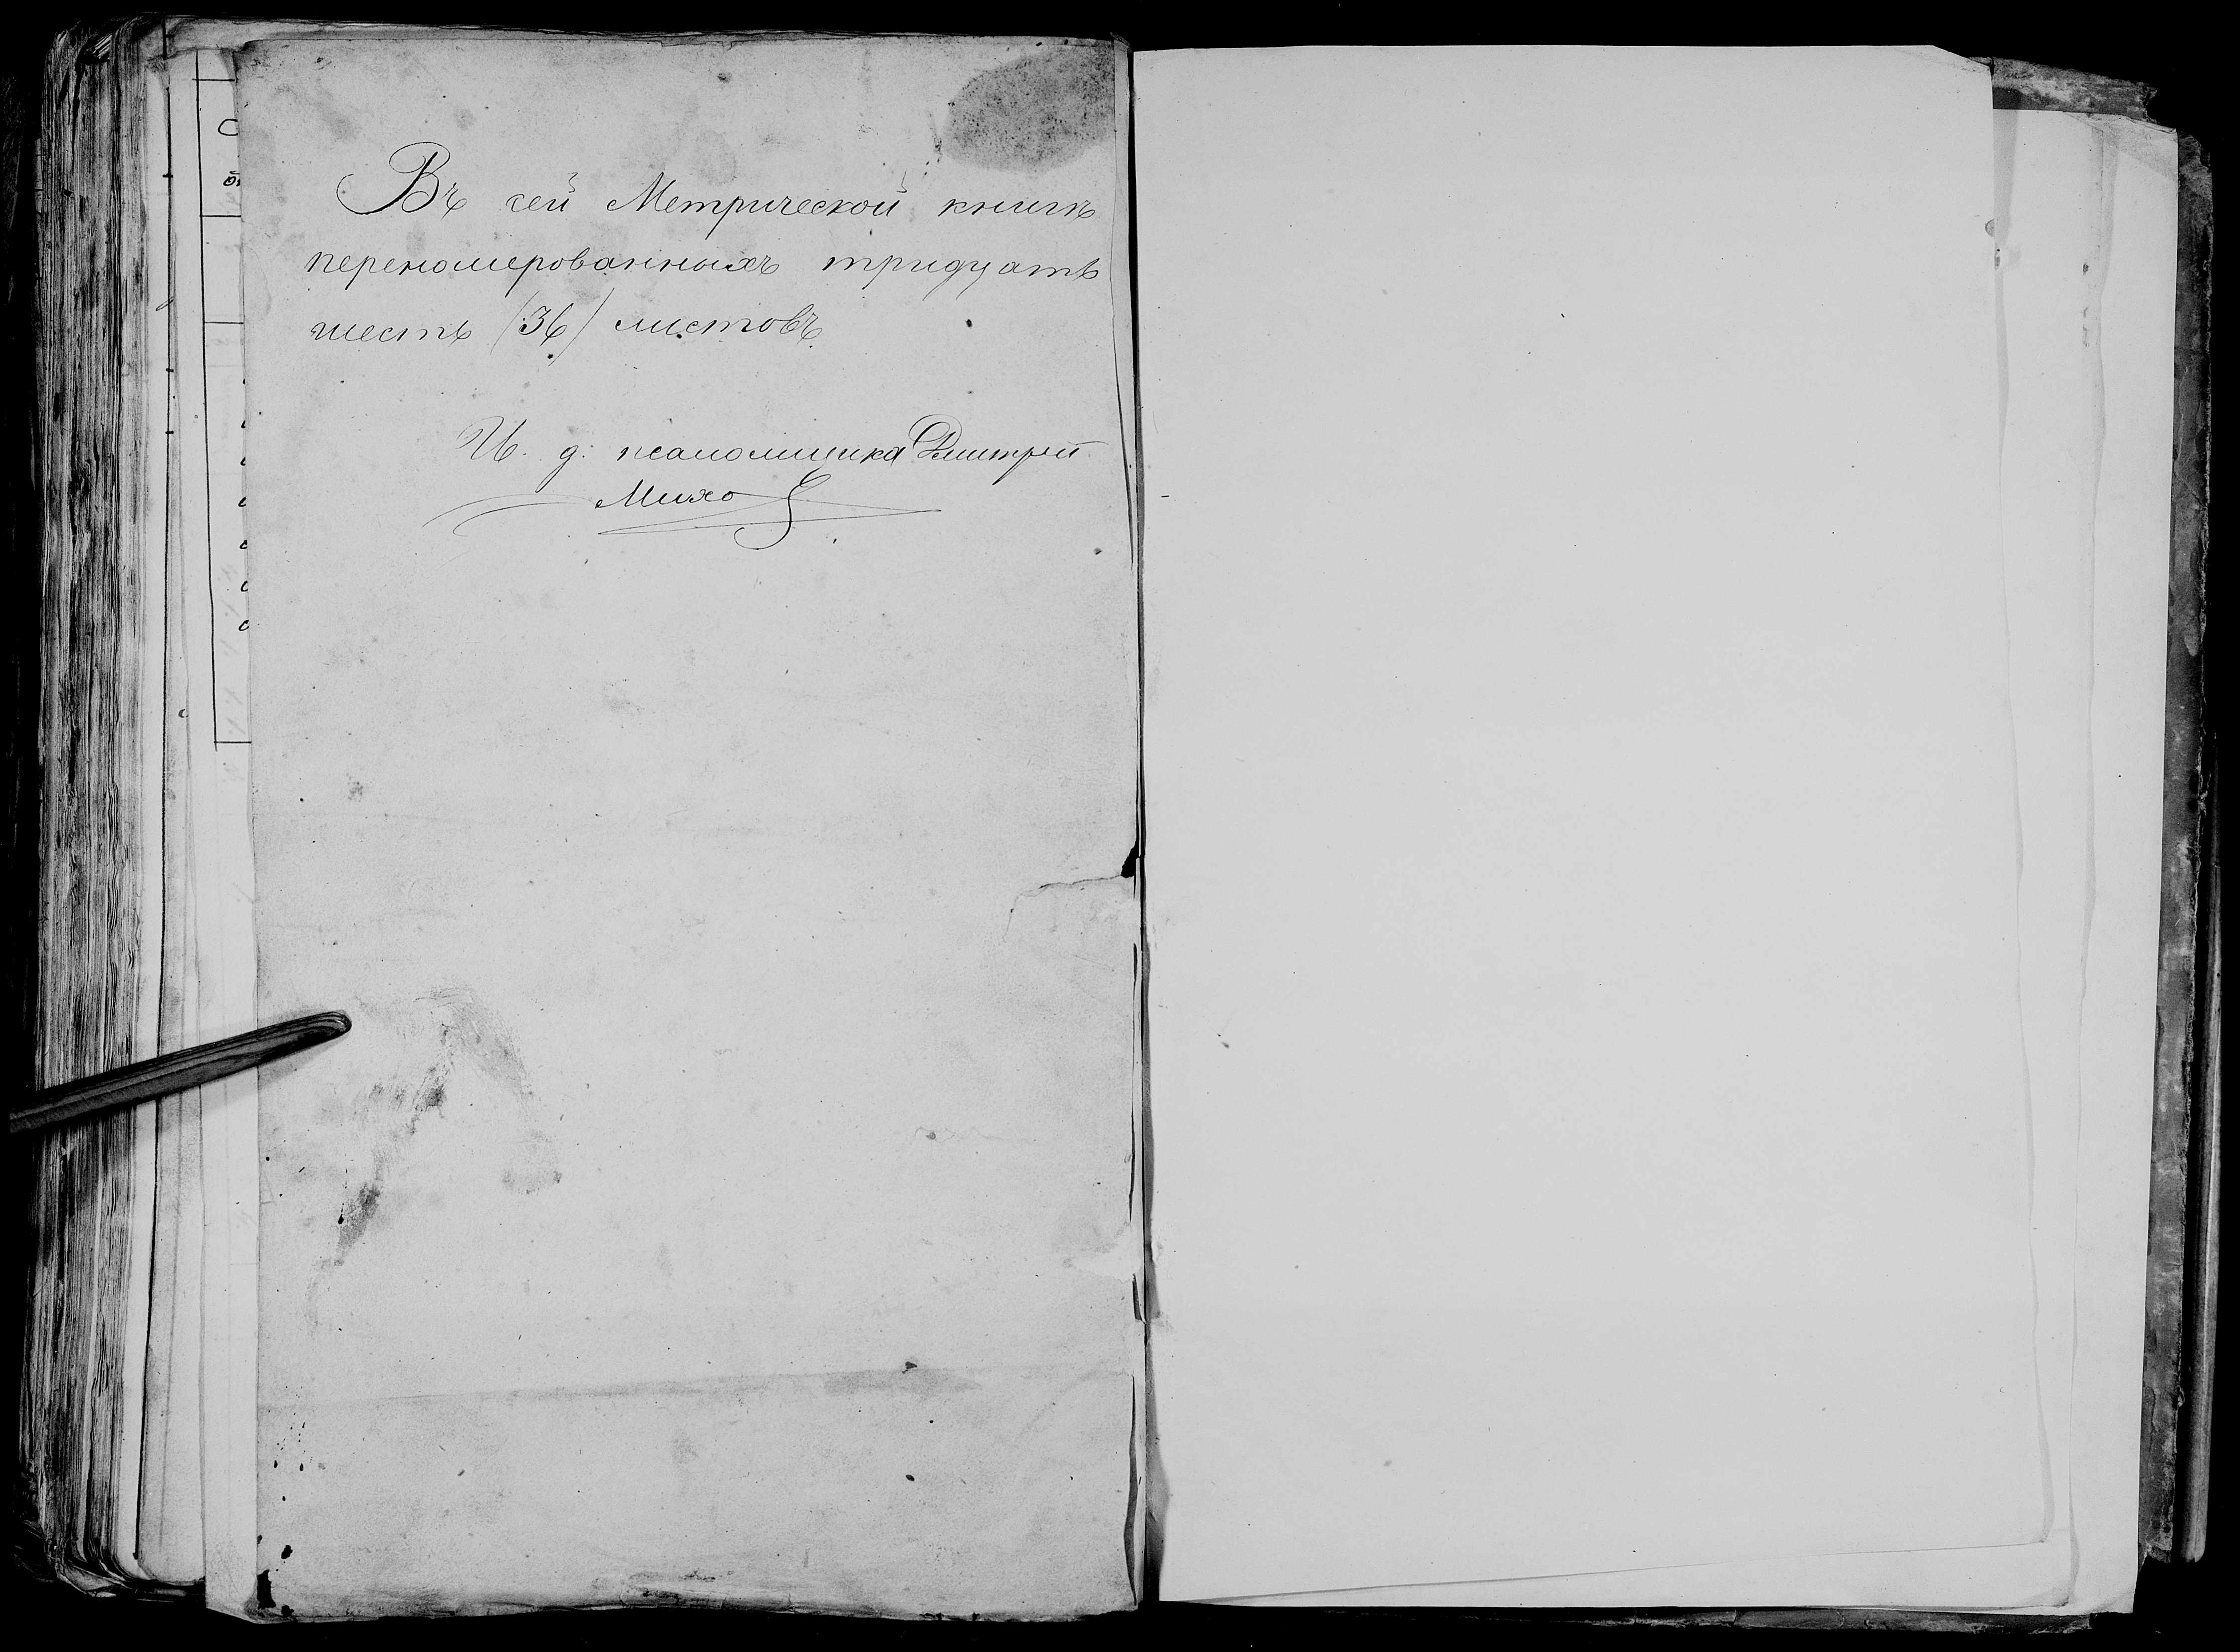 Въ сей Метрической книгѣ
переномерованныхъ тридцать
шесть (36) листовъ.
И. д. псаломщика Дмитрій
Михо